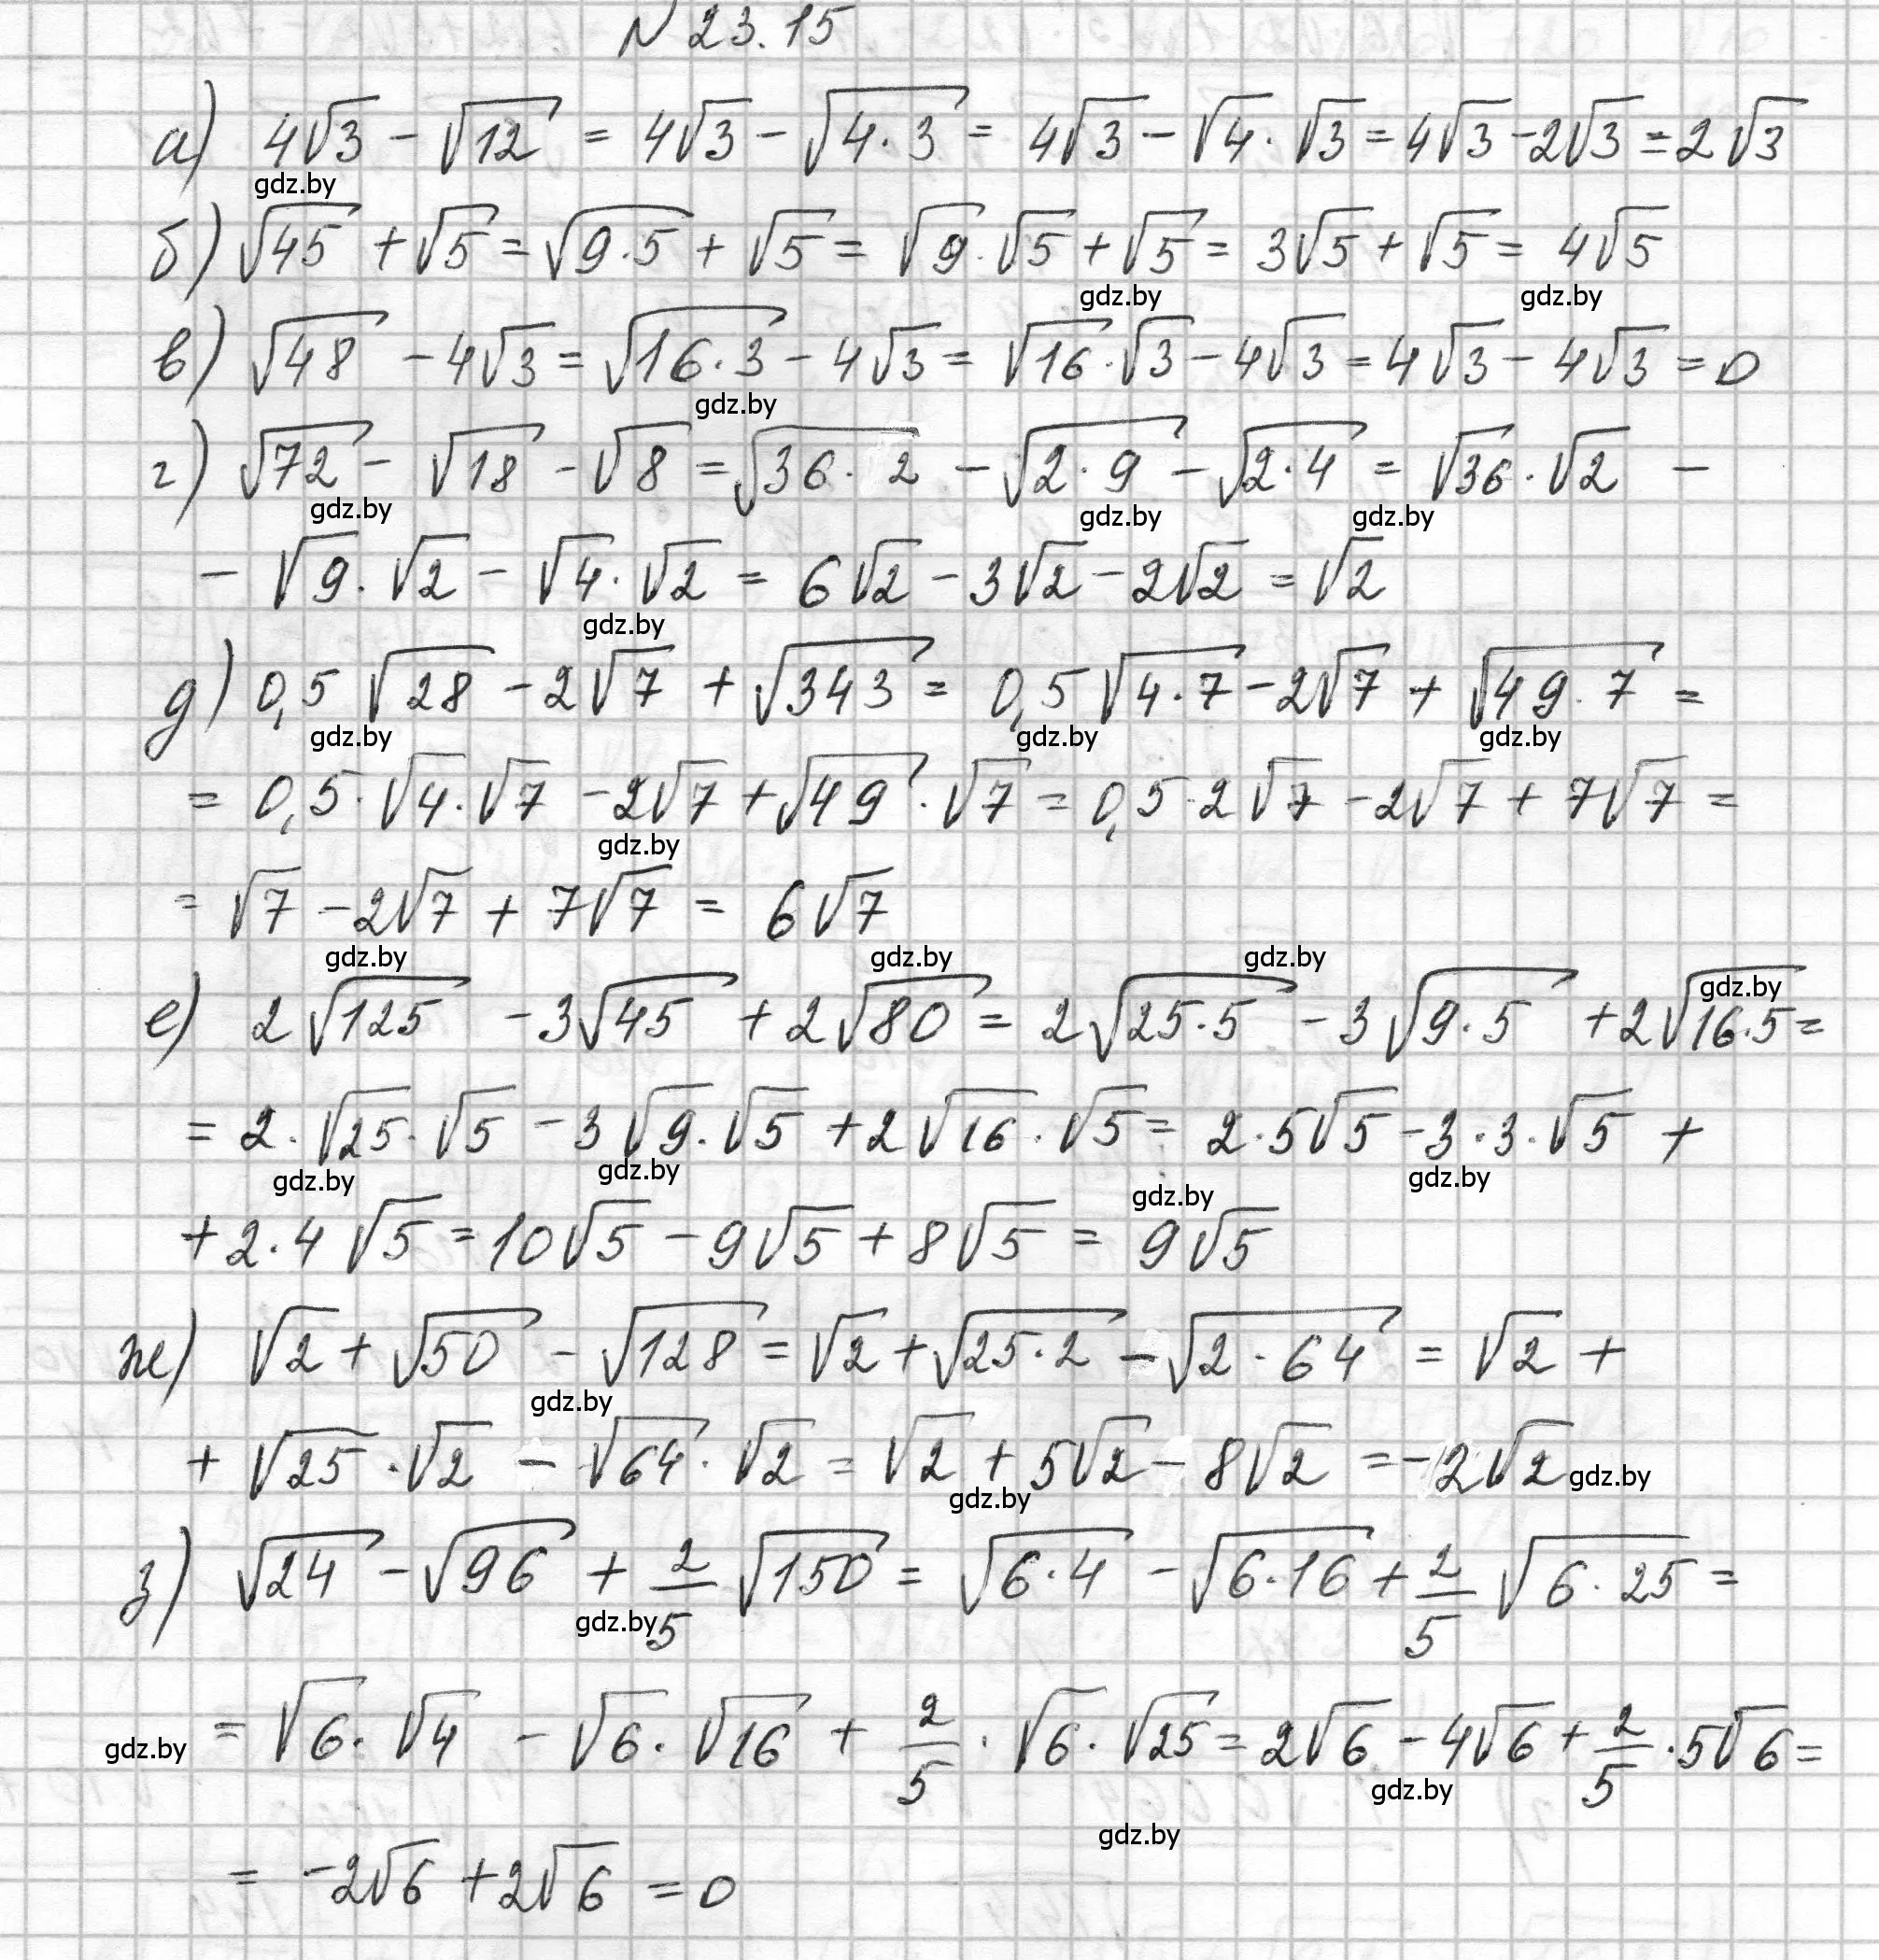 N 23.15
а) 4√3 - √12 = 4√3 - √4·3 = 4√3 - √4·√3 = 4√3 - 2√3 = 2√3
gdz.by
б) √45 + √5 = √9·5 + √5 = √9·√5 + √5 = 3√5 + √5 = 4√5
gdz.by gdz.by
в) √48 - 4√3 = √16·3 - 4√3 = √16·√3 - 4√3 = 4√3 - 4√3 = 0
gdz.by
г) √72 - √18 - √8 = √36·2 - √2·9 - √2·4 = √36·√2 -
gdz.by gdz.by gdz.by
- √9·√2 - √4·√2 = 6√2 - 3√2 - 2√2 = √2
gdz.by
д) 0,5√28 - 2√7 + √343 = 0,5√4·7 - 2√7 + √49·7 =
gdz.by gdz.by gdz.by
= 0,5·√4·√7 - 2√7 + √49·√7 = 0,5·2√7 - 2√7 + 7√7 =
gdz.by
= √7 - 2√7 + 7√7 = 6√7
gdz.by gdz.by gdz.by
gdz.by
е) 2√125 - 3√45 + 2√80 = 2√25·5 - 3√9·5 + 2√16·5 =
= 2·√25·√5 - 3√9·√5 + 2√16·√5 = 2·5√5 - 3·3·√5 +
gdz.by gdz.by gdz.by
gdz.by
+ 2·4√5 = 10√5 - 9√5 + 8√5 = 9√5
ж) √2 + √50 - √128 = √2 + √25·2 - √2·64 = √2 +
gdz.by
+ √25·√2 - √64·√2 = √2 + 5√2 - 8√2 = -2√2 gdz.by
gdz.by
з) √24 - √96 + 2/5 √150 = √6·4 - √6·16 + 2/5 √6·25 =
gdz.by
gdz.by = √6·√4 - √6·√16 + 2/5·√6·√25 = 2√6 - 4√6 + 2/5·5√6 =
gdz.by
gdz.by
= -2√6 + 2√6 = 0